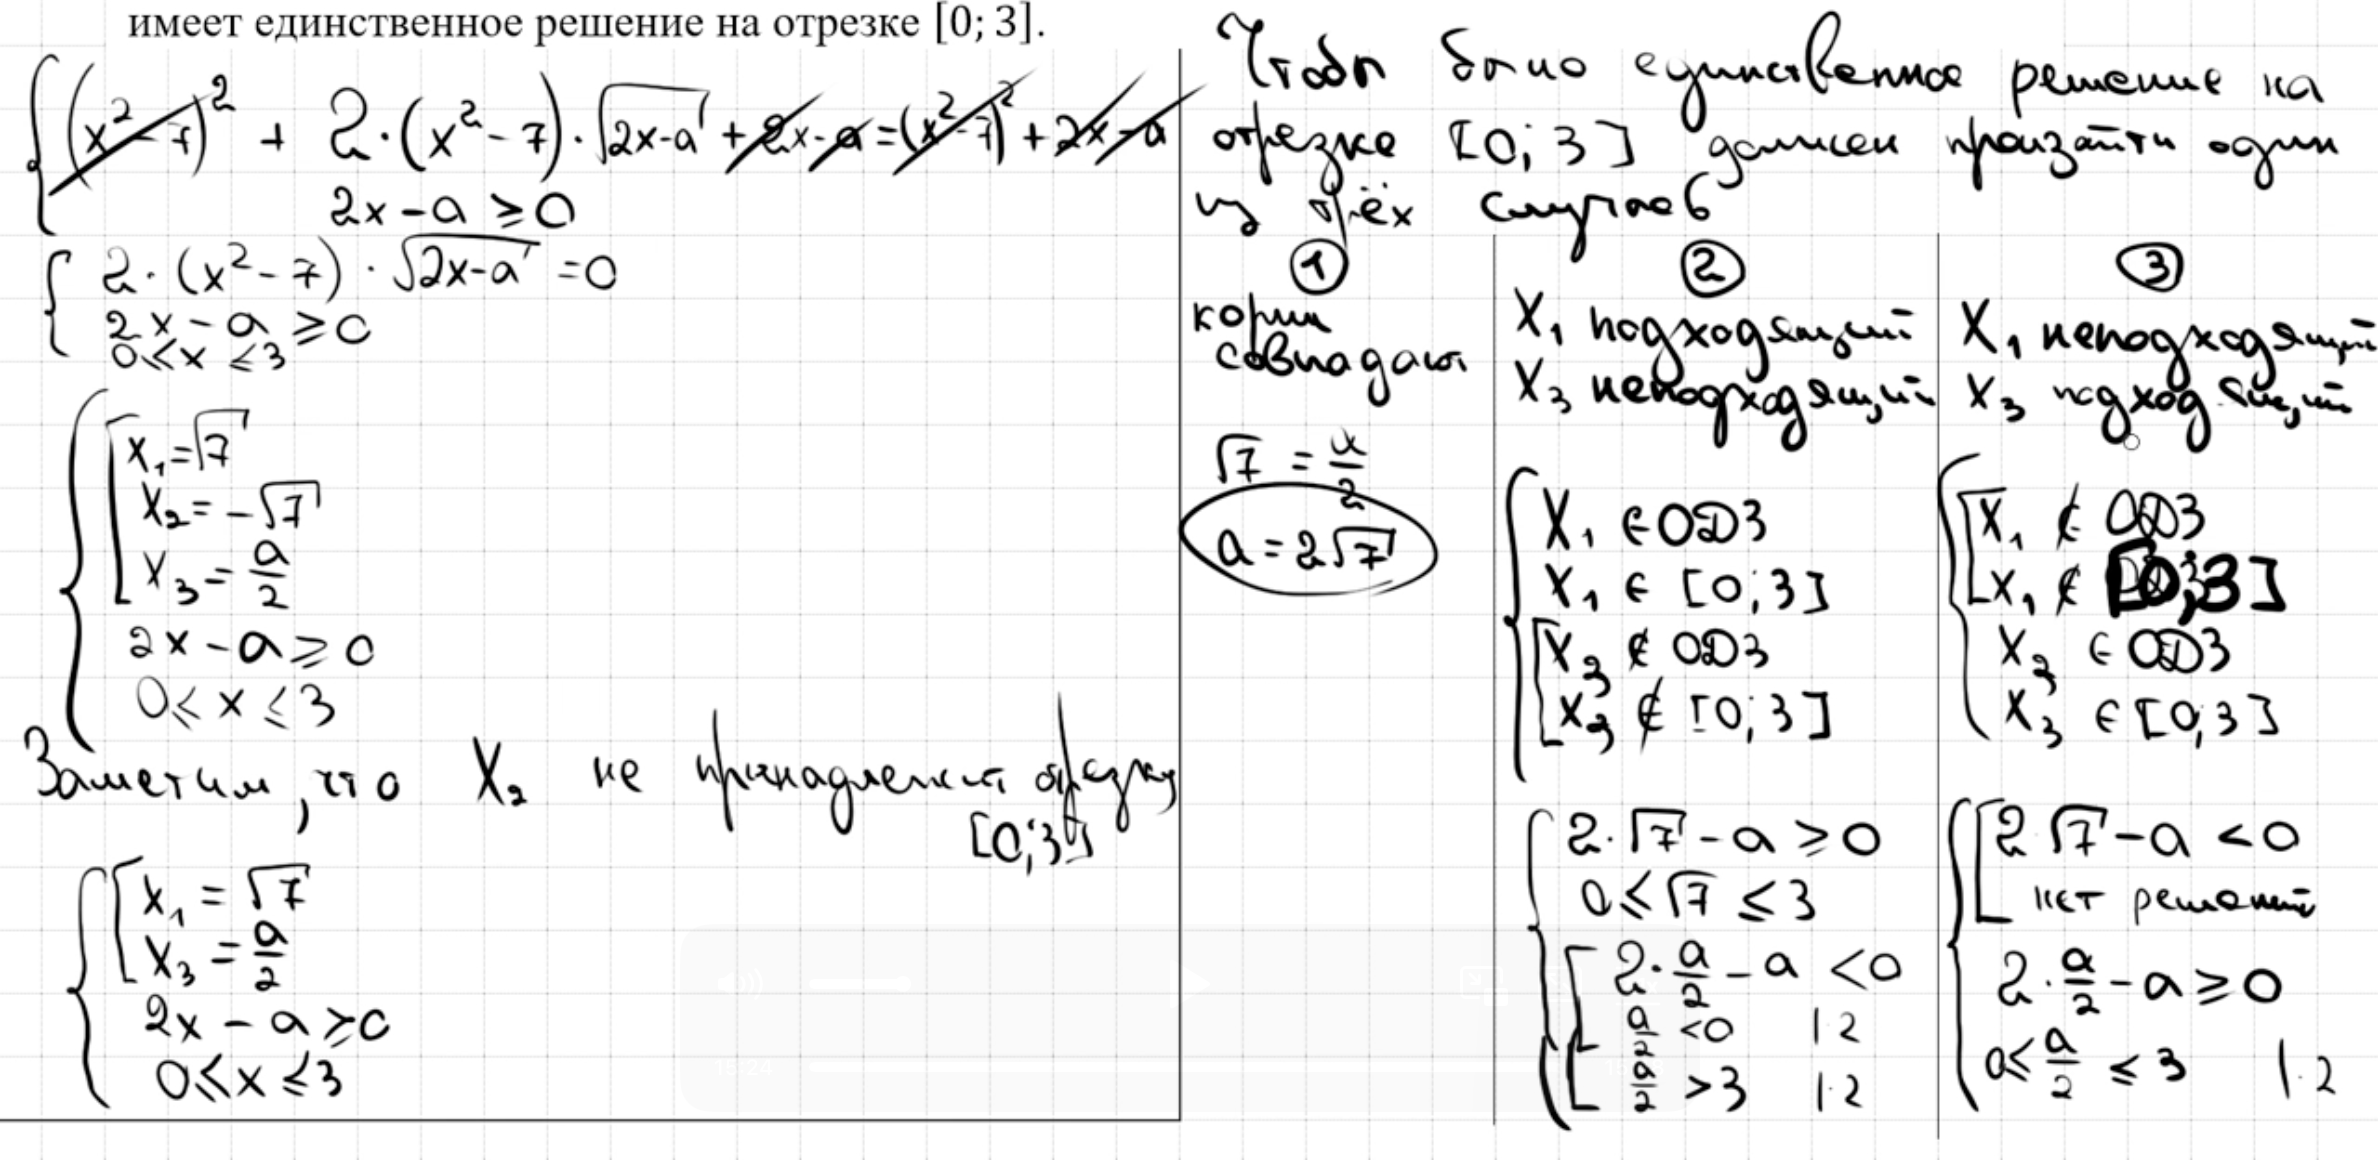 имеет единственное решение на отрезке [0; 3].
(x² - 7)² + 2·(x² - 7)·√(2x-a) + 2x-a = (x²-7)² + 2x-a
2x - a ≥ 0
2·(x² - 7)·√(2x-a) = 0
2x - a ≥ 0
0 ≤ x ≤ 3
x₁ = √7
x₂ = -√7
x₃ = a/2
2x - a ≥ 0
0 ≤ x ≤ 3
Заметим, что x₂ не принадлежит отрезку
[0; 3]
x₁ = √7
x₃ = a/2
2x - a ≥ 0
0 ≤ x ≤ 3
Чтобы было единственное решение на
отрезке [0; 3] должен произайти один
из трёх случаев
1
корни
совпадают
√7 = a/2
a = 2√7
2
x₁ подходящий
x₃ неподходящий
x₁ ∈ ОДЗ
x₁ ∈ [0; 3]
x₃ ∉ ОДЗ
x₃ ∉ [0; 3]
2·√7 - a ≥ 0
0 ≤ √7 ≤ 3
2·a/2 - a < 0
a/2 < 0 |·2
a/2 > 3 |·2
3
x₁ неподходящий
x₃ подходящий
x₁ ∉ ОДЗ
x₁ ∉ [0;3]
x₃ ∈ ОДЗ
x₃ ∈ [0;3]
2√7 - a < 0
нет решений
2·a/2 - a ≥ 0
0 ≤ a/2 ≤ 3 |·2